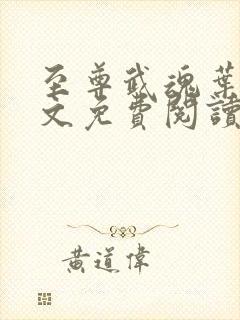 至尊武魂葉
文免費閱讀
黃道偉